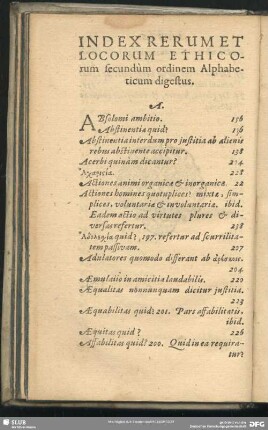 INDEX RERUM ET
LOCORUM ETHICO-
rum secundùm ordinem Alphabe-
ticum digestus.
A.
ABsolomi ambitio. 156
Abstinentia quid? 136
Abstinentia interdum pro justitia ab alienis
rebus abstinente accipitur. 138
Acerbi quinàm dicantur? 214
218
Actiones animi organicæ & inorganicæ. 22
Actiones hominis quotuplices? mixta, sim-
plices, voluntaria & involuntaria. ibid.
Eadem actio ad virtutes plures & di-
versas refertur. 138
quid? 197. refertur ad scurrilita-
tem passivam. 207
Adulatores quomodo differant ab
204
Æmulatio in amicitia laudabilis. 220
Æqualitas nonnunquam dicitur justitia.
223
Æquabilitas quid? 201. Pars affabilitatis.
ibid.
Æquitas quid? 226
Affabilitas quid? 200. Quid in ea requira-
tur?
SLUB
DFG